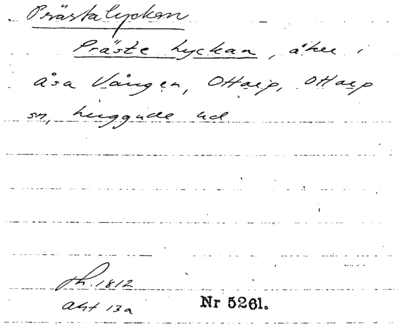 Prästalyckan
Präste Lyckan, åker i
åsa Vången, Ottarp, Ottarp
sn, huggude ud
sk. 1812
akt 13a
Nr 5261.